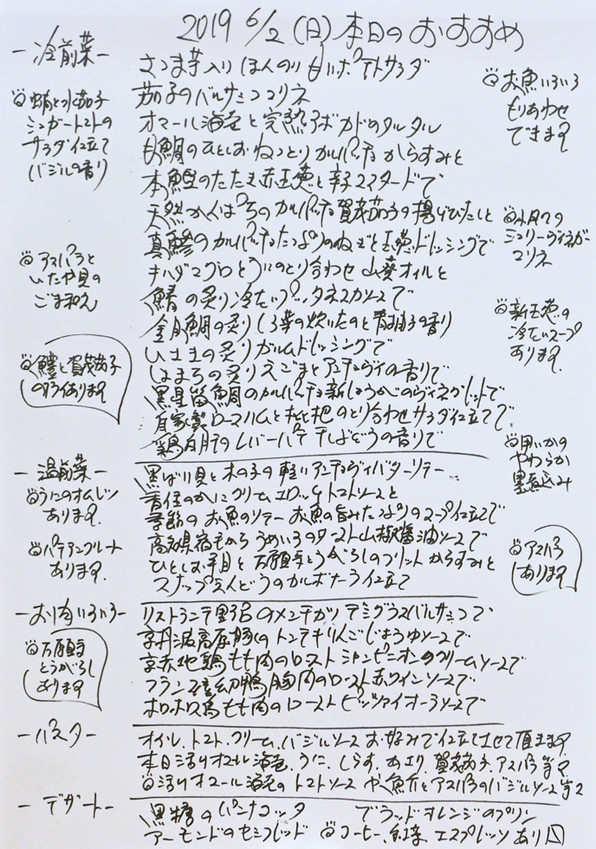 2019 6/2(日)本日のおすすめ
-冷前菜-
さつま芋入り ほんのり甘いポテトサラダ
茄子のバルサミコマリネ
オマール海老と完熟アボカドのタルタル
甘鯛のひとしお ねっとりカルパッチョ からすみと
本鰹のたたき 赤玉葱と辛子マスタードで
天然かんぱちのカルパッチョ 賀茂茄子の揚げびたしと
真鯵のカルパッチョ たっぷりのねぎと玉葱ドレッシングで
キハダマグロとうにのとり合わせ 山葵オイルと
鯖の炙り 冷たいプッタネスカソースで
金目鯛の炙り
いさきの炙り ガルムドレッシングで
はまちの炙り えごまとアンチョヴィの香りで
黒昆布〆鯛のカルパッチョ 新しょうがのヴィネグレットで
自家製ロースハムと枇杷のとり合わせ サラダ仕立てで
鶏白肝のレバーパテ 干しぶどうの香りで
蛸と水茄子
シュガートマトの
サラダ仕立て
バジルの香り
アスパラと
いたや貝の
ごま和え
鱧と賀茂茄子
のフライあります
お魚いろいろ
もりあわせ
できます
シェリーヴィネガー
マリネ
新玉葱の
冷たいスープ
あります
やわらか
墨煮込み
アスパラ
あります
-温前菜-
うにのオムレツ
あります
パテアンクルート
あります
黒ばい貝と木の子の軽いアンチョヴィバターソテー
香住のかにクリームコロッケ トマトソースと
季節のお魚のソテー お魚の旨みたっぷりのスープ仕立てで
高知県宿毛から うめいろのロースト 山椒醤油ソースで
ひとしお平目と万願寺とうがらしのフリット からすみと
スナップえんどうのカルボナーラ仕立て
-お肉いろいろ-
万願寺
とうがらし
あります
リストランテ野呂のメンチカツ デミグラスバルサミコで
京丹波高原豚のトンテキ りんごじょうゆソースで
京赤地鶏もも肉のロースト シャンピニオンのクリームソースで
フランス産幼鴨胸肉のロースト 赤ワインソースで
ホロホロ鳥もも肉のロースト ピッツァイオーラソースで
-パスタ-
オイル、トマト、クリーム、バジルソース お好みで仕立てさせて頂きます
本日 活オマール海老、うに、しらす、あさり、賀茂茄子、アスパラ等々
活オマール海老のトマトソースや、魚介とアスパラのバジルソース等々
-デザート-
黒糖のパンナコッタ
ブラッドオレンジのプリン
アーモンドのセミフレッド
コーヒー、紅茶、エスプレッソあり〼